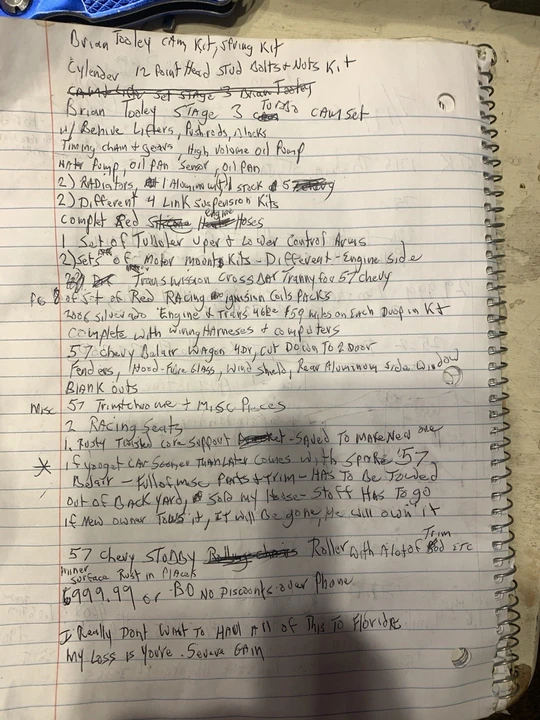 Brian Tooley CAM Kit, Spring Kit
Cylender 12 Point Head Stud Bolts + Nuts Kit
Set Stage 3 Brian Tooley
Brian Tooley Stage 3 Turbo CAM Set
w/ Behive Lifters, Pushrods,
Timing chain + Gears, High Volume Oil Pump
Water Pump, Oil Pan Sensor, Oil Pan
2) Radiators, 1 Aluminum + 1 Stock 57
2) Different 4 Link Suspension Kits
Complet Red Engine Hoses
1 Set of Tubular Uper + Lower Control Arms
2) Sets of Motor Mounts Kits - Different - Engine Side
Transmission Cross Bar Tranny for 57 Chevy
of Set of Red Racing Ignission Coils Packs
2006 Silverado Engine + Trans on Each Drop in Kit
Complete with wiring Harness + Computers
57 Chevy Belair Wagon 4Dr, Cut Down To 2 Door
Fenders, Hood - Glass, Wind Shield, Rear Aluminum Side Window
Blank outs
Misc 57 Trim + Misc Pieces
2 Racing Seats
1. Rusty Twisted Core Support - Saved To Make New one
* if you get CAR Sooner Than Later Comes with Spare '57
Belair - Full of misc Parts + Trim - HAS To Be Towed
out of Back Yard, Sold my House - Stuff Has To go
if New owner Tows it, IT will Be gone, He will own it
57 Chevy Roller with A lot of Trim ETC
inner Surface Rust in Places
$999.99 or - BO No Discounts over Phone
I Really Dont Want To Haul All of This To Florida
My Loss is You're Severe Gain